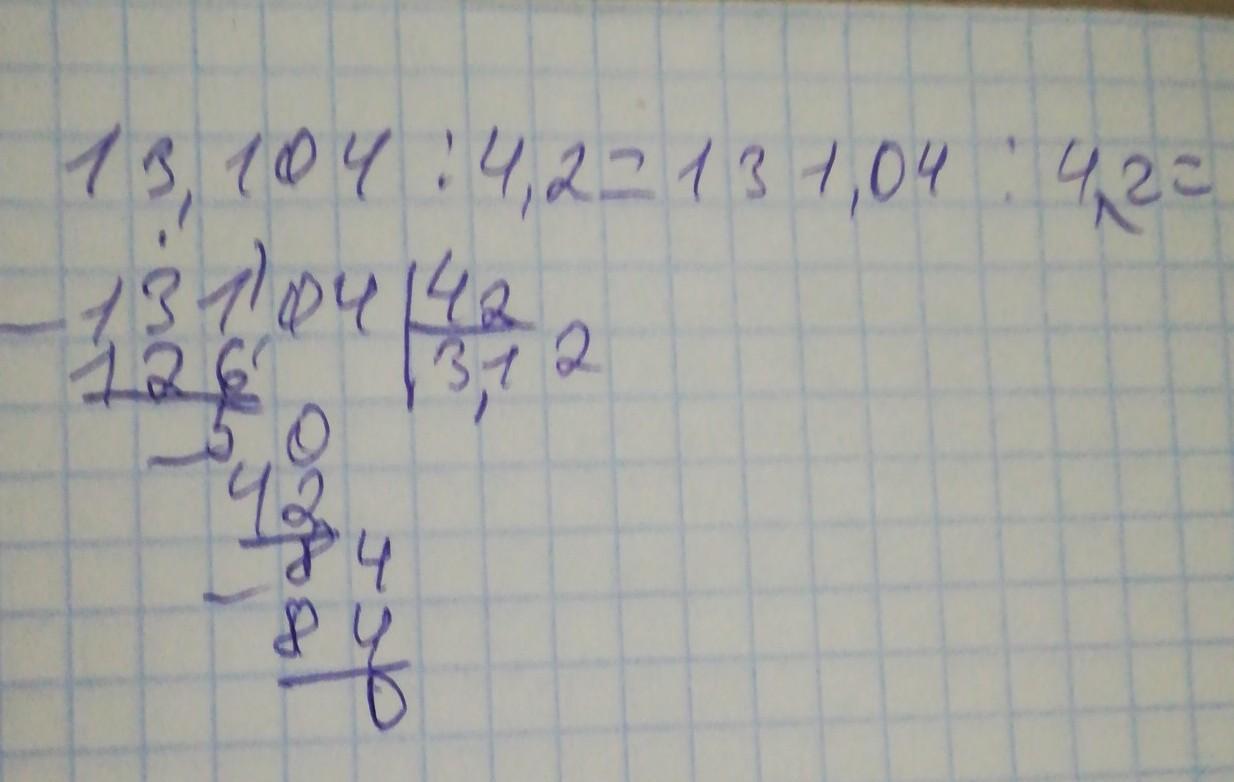 13,104 : 4,2 = 131,04 : 4,2 =
131,04 | 42
126 | 3,12
- 50
42
- 84
84
0